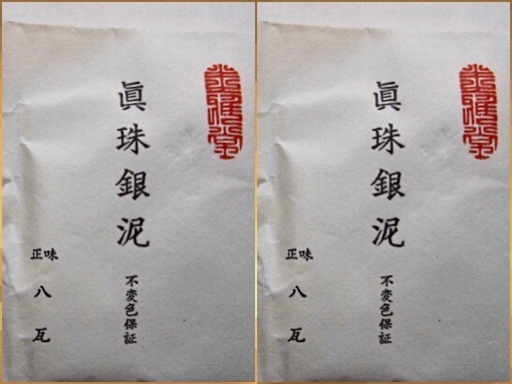 眞珠銀泥
不変色保証
正味
八瓦
眞珠銀泥
不変色保証
正味
八瓦